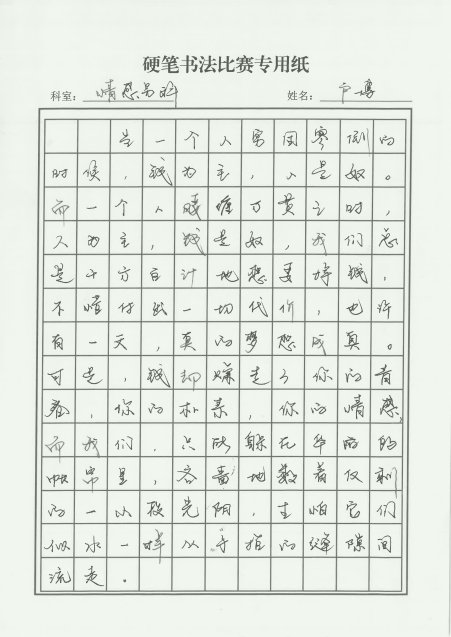 硬笔书法比赛专用纸
科室: 情感 姓名:
当一个人穷困寥倒的
时候,钱为主,人是奴。
而一个人腰缠万贯之时,
人为主,钱是奴,我们总
是千方百计地想要挣钱,
不惜付出一切代价,也许
有一天,真的梦想成真。
可是,钱却赚走了你的青
春,你的朴素,你的情感,
而我们,只能躲在华丽的
帐帘里,吝啬地数着仅剩
的一从股光阳,生怕它们
似水一样从手指的缝隙间
流走。